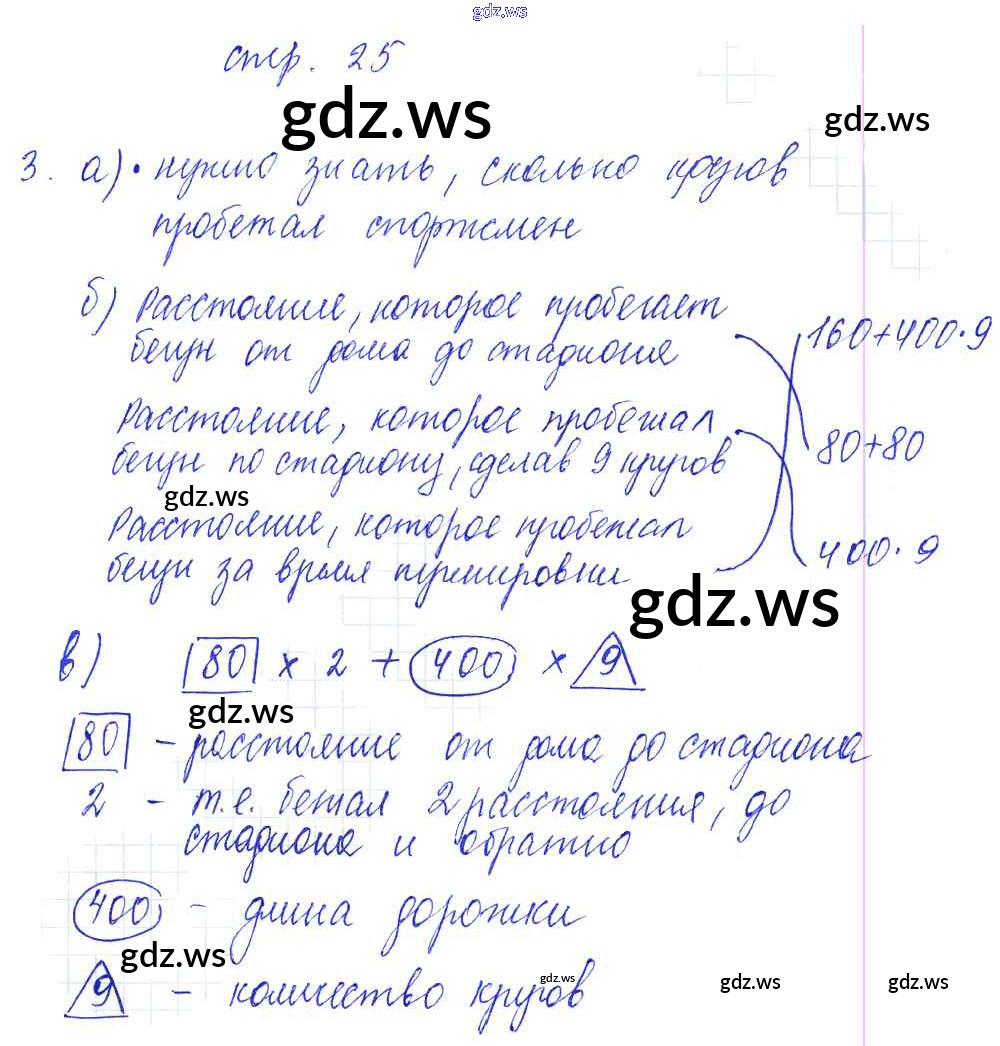 gdz.ws
стр. 25
gdz.ws
gdz.ws
3. а) • нужно знать, сколько кругов
пробегал спортсмен
б) Расстояние, которое пробегает
бегун от дома до стадиона
160+400·9
Расстояние, которое пробежал
бегун по стадиону, сделав 9 кругов
80+80
gdz.ws
Расстояние, которое пробежал
бегун за время тренировки
400·9
gdz.ws
в) 80 × 2 + 400 × 9
gdz.ws
80 – расстояние от дома до стадиона
2 – т.е. бежал 2 расстояния, до
стадиона и обратно
400 – длина дорожки
gdz.ws
9 – количество кругов
gdz.ws
gdz.ws
gdz.ws